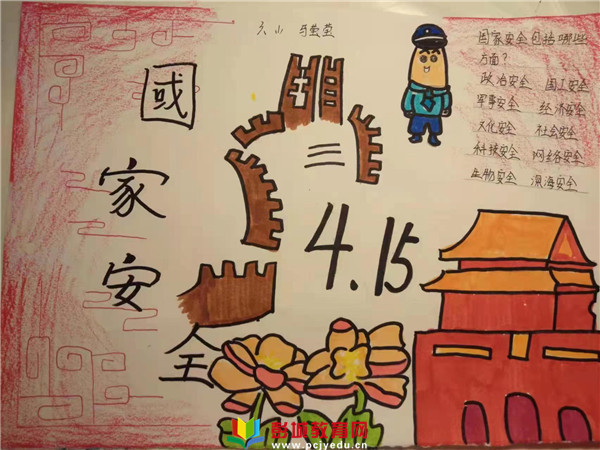 六小 马莹莹
國
家
安
全
4.15
国家安全包括哪些
方面？
政治安全 国土安全
军事安全 经济安全
文化安全 社会安全
科技安全 网络安全
生物安全 深海安全
彭城教育网
www.pcjyedu.cn